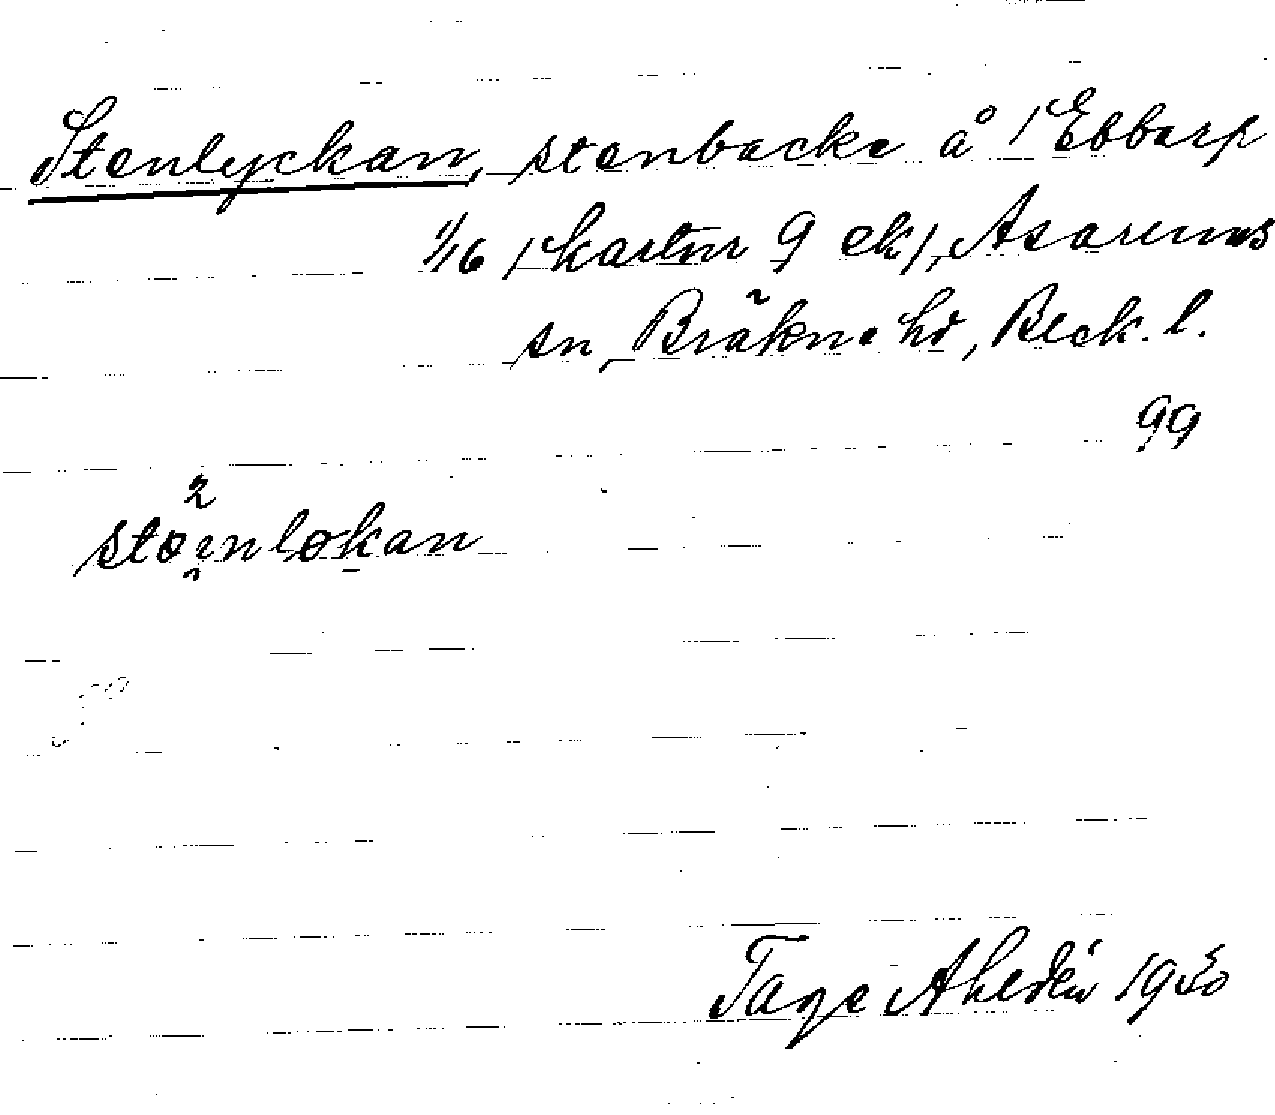 Stenlyckan, stenbacke å /Ebbarp
1/16 /kartnr 9 ek/, Asarums
sn, Bräkne hd, Bleck. l.
99
Tage Ahldén 1950